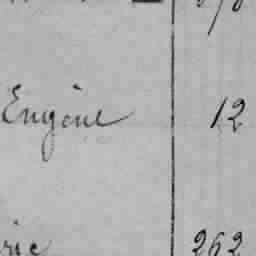 Eugène 12
rie 262